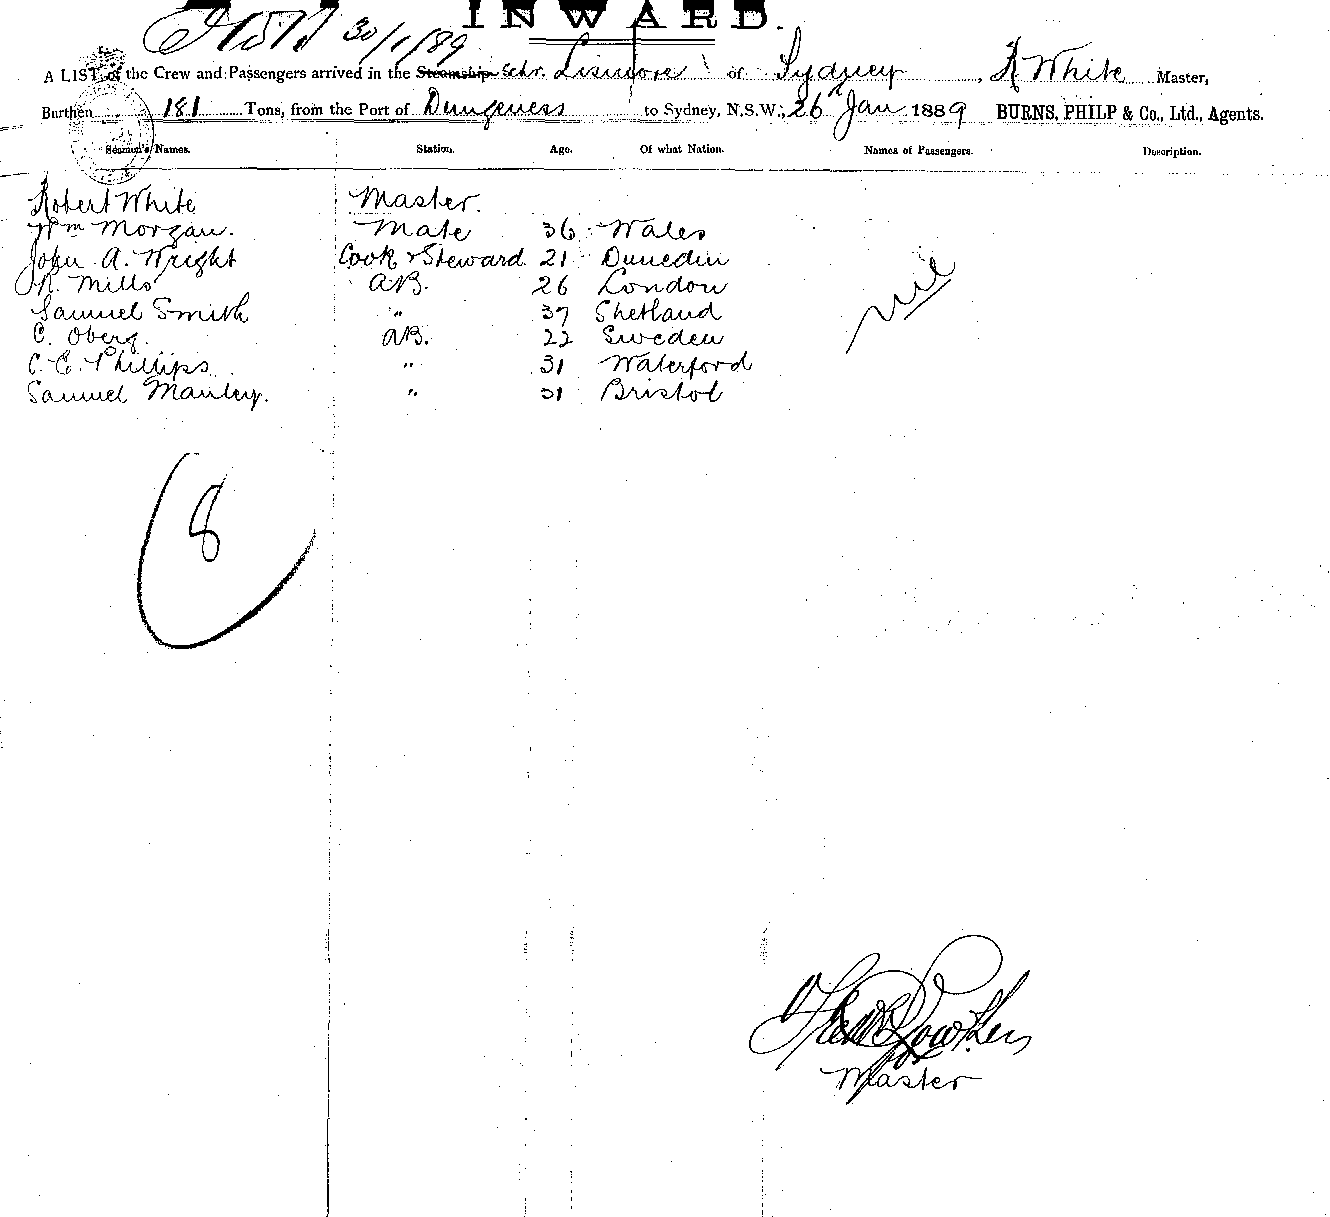 INWARD.
30/1/89
A LIST of the Crew and Passengers arrived in the Steamship Schr. Lismore of Sydney, R White Master,
Burthen 181 Tons, from the Port of Dungeness to Sydney, N.S.W., 26 Jan 1889 BURNS, PHILP & Co., Ltd., Agents.
Seamen's Names. Station. Age. Of what Nation. Names of Passengers. Description.
Robert White Master.
Wm Morgan. Mate 36 Wales
John A. Wright Cook & Steward 21 Dunedin
R. Mills AB. 26 London
Samuel Smith " 37 Shetland
C. Oberg. AB. 22 Sweden
C. E. Phillips. " 31 Waterford
Samuel Manley. " 31 Bristol
nil
8
for
Master